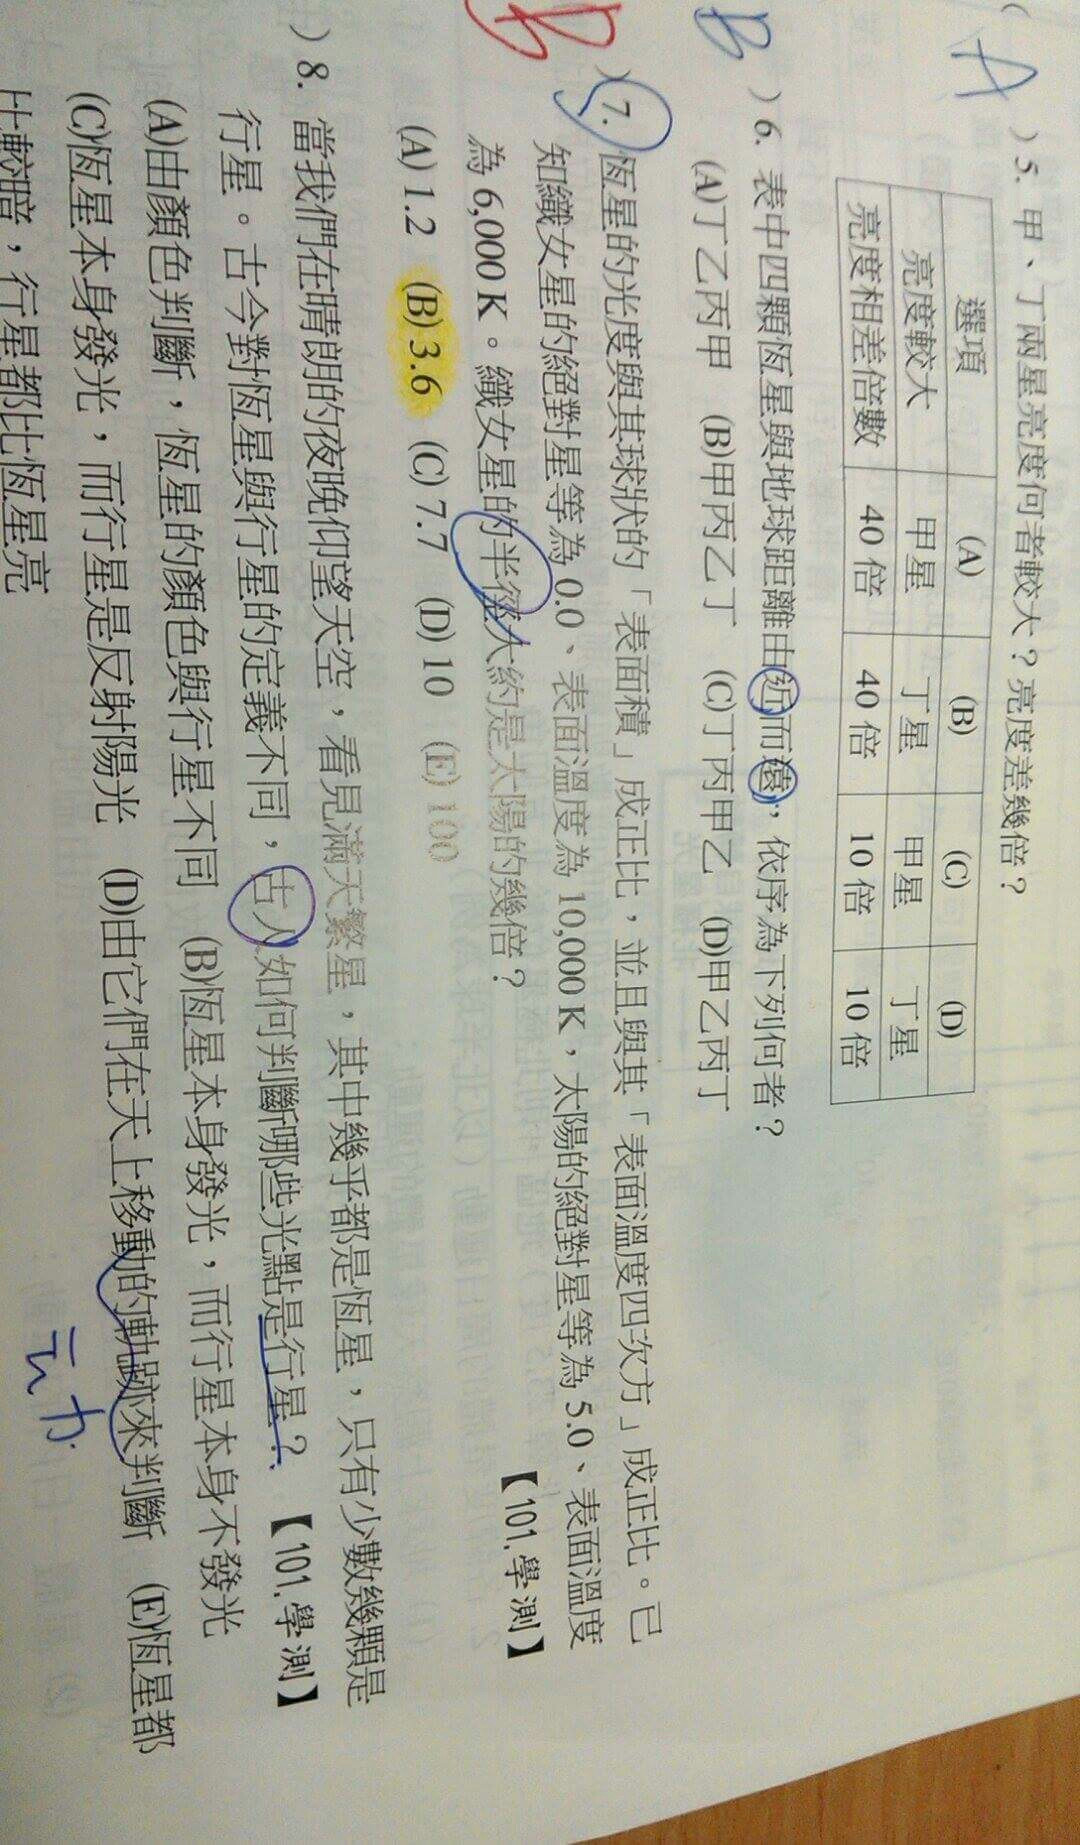 A
( ) 5. 甲、丁兩星亮度何者較大？亮度差幾倍？
選項 (A) (B) (C) (D)
亮度較大 甲星 丁星 甲星 丁星
亮度相差倍數 40 倍 40 倍 10 倍 10 倍
B ) 6. 表中四顆恆星與地球距離由近而遠，依序為下列何者？
(A)丁乙丙甲 (B)甲丙乙丁 (C)丁丙甲乙 (D)甲乙丙丁
B ) 7. 恆星的光度與其球狀的「表面積」成正比，並且與其「表面溫度四次方」成正比。已
知織女星的絕對星等為 0.0、表面溫度為 10,000 K，太陽的絕對星等為 5.0、表面溫度
為 6,000 K。織女星的半徑大約是太陽的幾倍？ 【101.學測】
(A) 1.2 (B) 3.6 (C) 7.7 (D) 10 (E) 100
) 8. 當我們在晴朗的夜晚仰望天空，看見滿天繁星，其中幾乎都是恆星，只有少數幾顆是
行星。古今對恆星與行星的定義不同，古人如何判斷哪些光點是行星？ 【101.學測】
(A)由顏色判斷，恆星的顏色與行星不同 (B)恆星本身發光，而行星本身不發光
(C)恆星本身發光，而行星是反射陽光 (D)由它們在天上移動的軌跡來判斷 (E)恆星都
比較暗，行星都比恆星亮